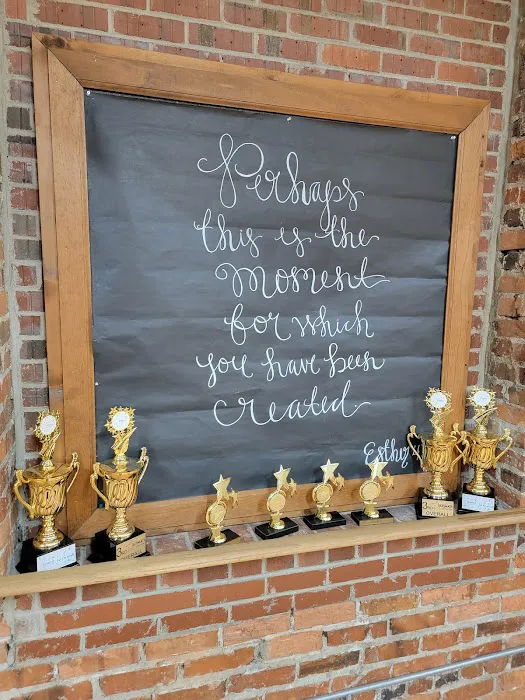 Perhaps
this is the
moment
for which
you have been
created
Esther
3RD
OVERALL